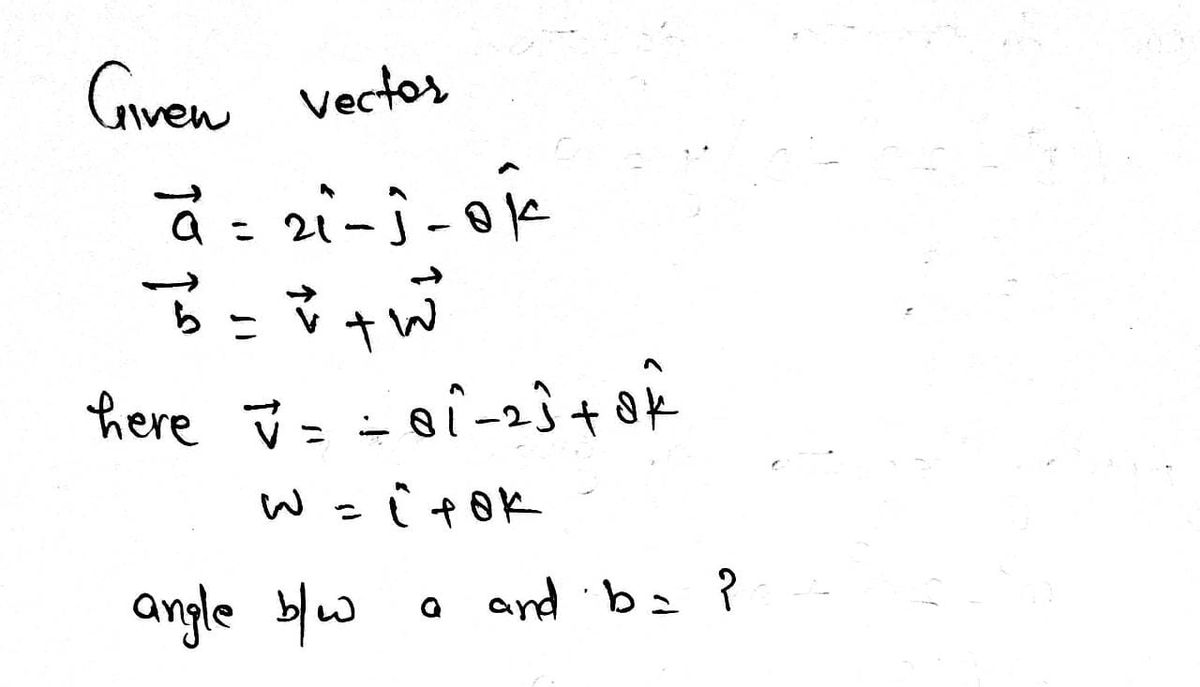 Given vector
a⃗ = 2î - ĵ - θ k̂
b⃗ = v⃗ + w⃗
here v⃗ = - θî - 2ĵ + θk̂
w = î + θk
angle b/w a and b = ?